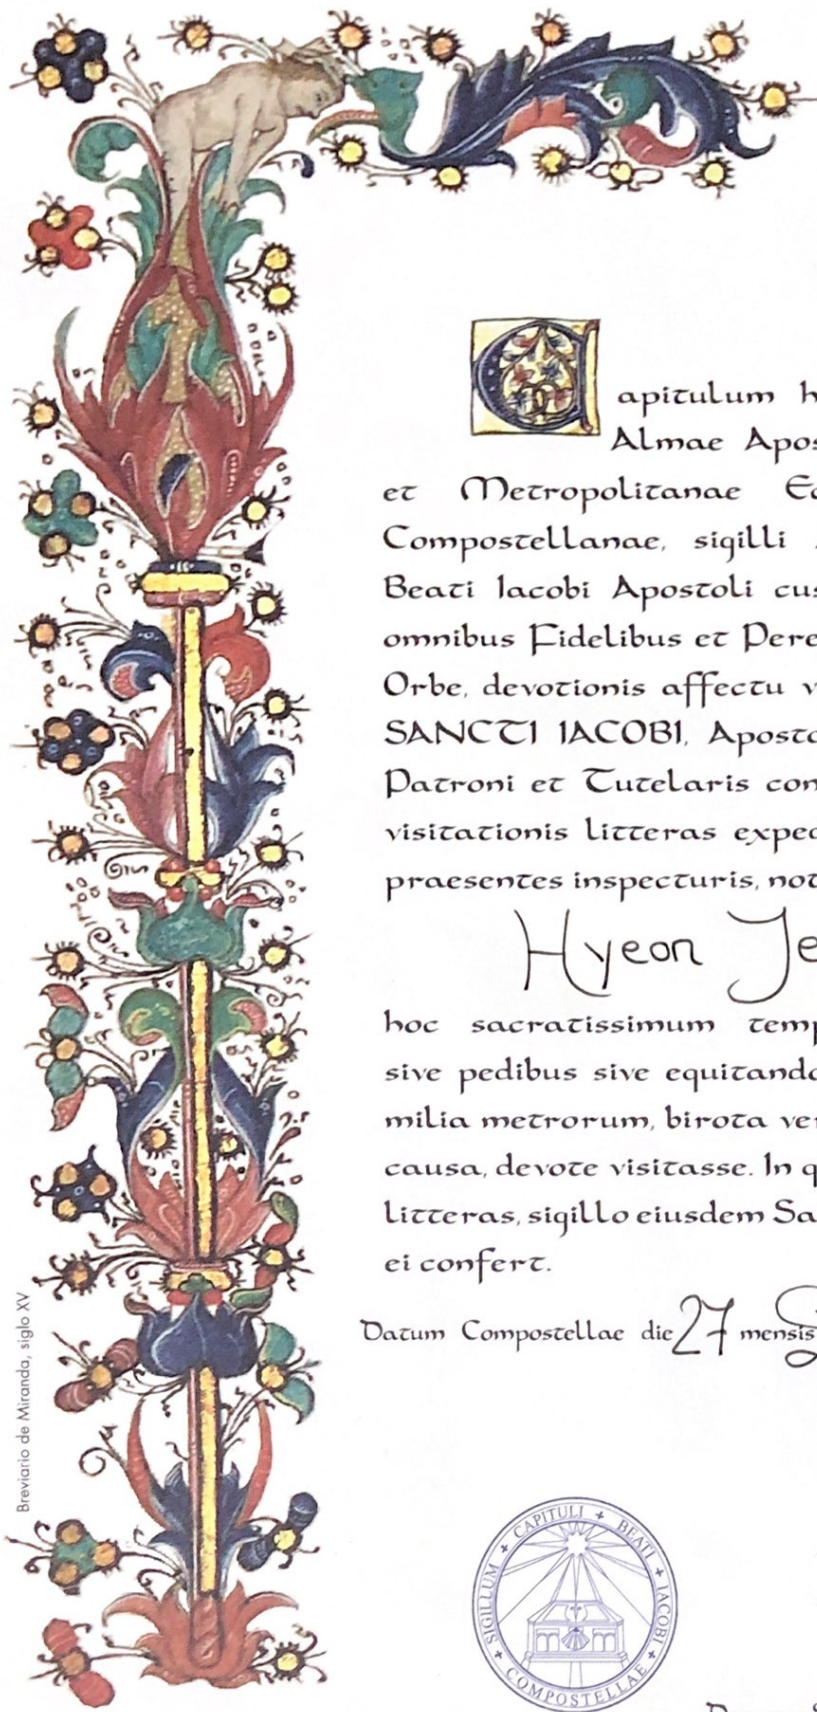 Capitulum h
Almae Apos
et Metropolitanae Ec
Compostellanae, sigilli
Beati Iacobi Apostoli cus
omnibus Fidelibus et Pere
Orbe, devotionis affectu v
SANCTI IACOBI, Aposto
Patroni et Tutelaris con
visitationis litteras exped
praesentes inspecturis, not
Hyeon Je
hoc sacratissimum temp
sive pedibus sive equitando
milia metrorum, birota ver
causa, devote visitasse. In q
litteras, sigillo eiusdem Sa
ei confert.
Datum Compostellae die 27 mensis
Breviario de Miranda, siglo XV
SIGILLUM + CAPITULI + BEATI + IACOBI + COMPOSTELLAE +